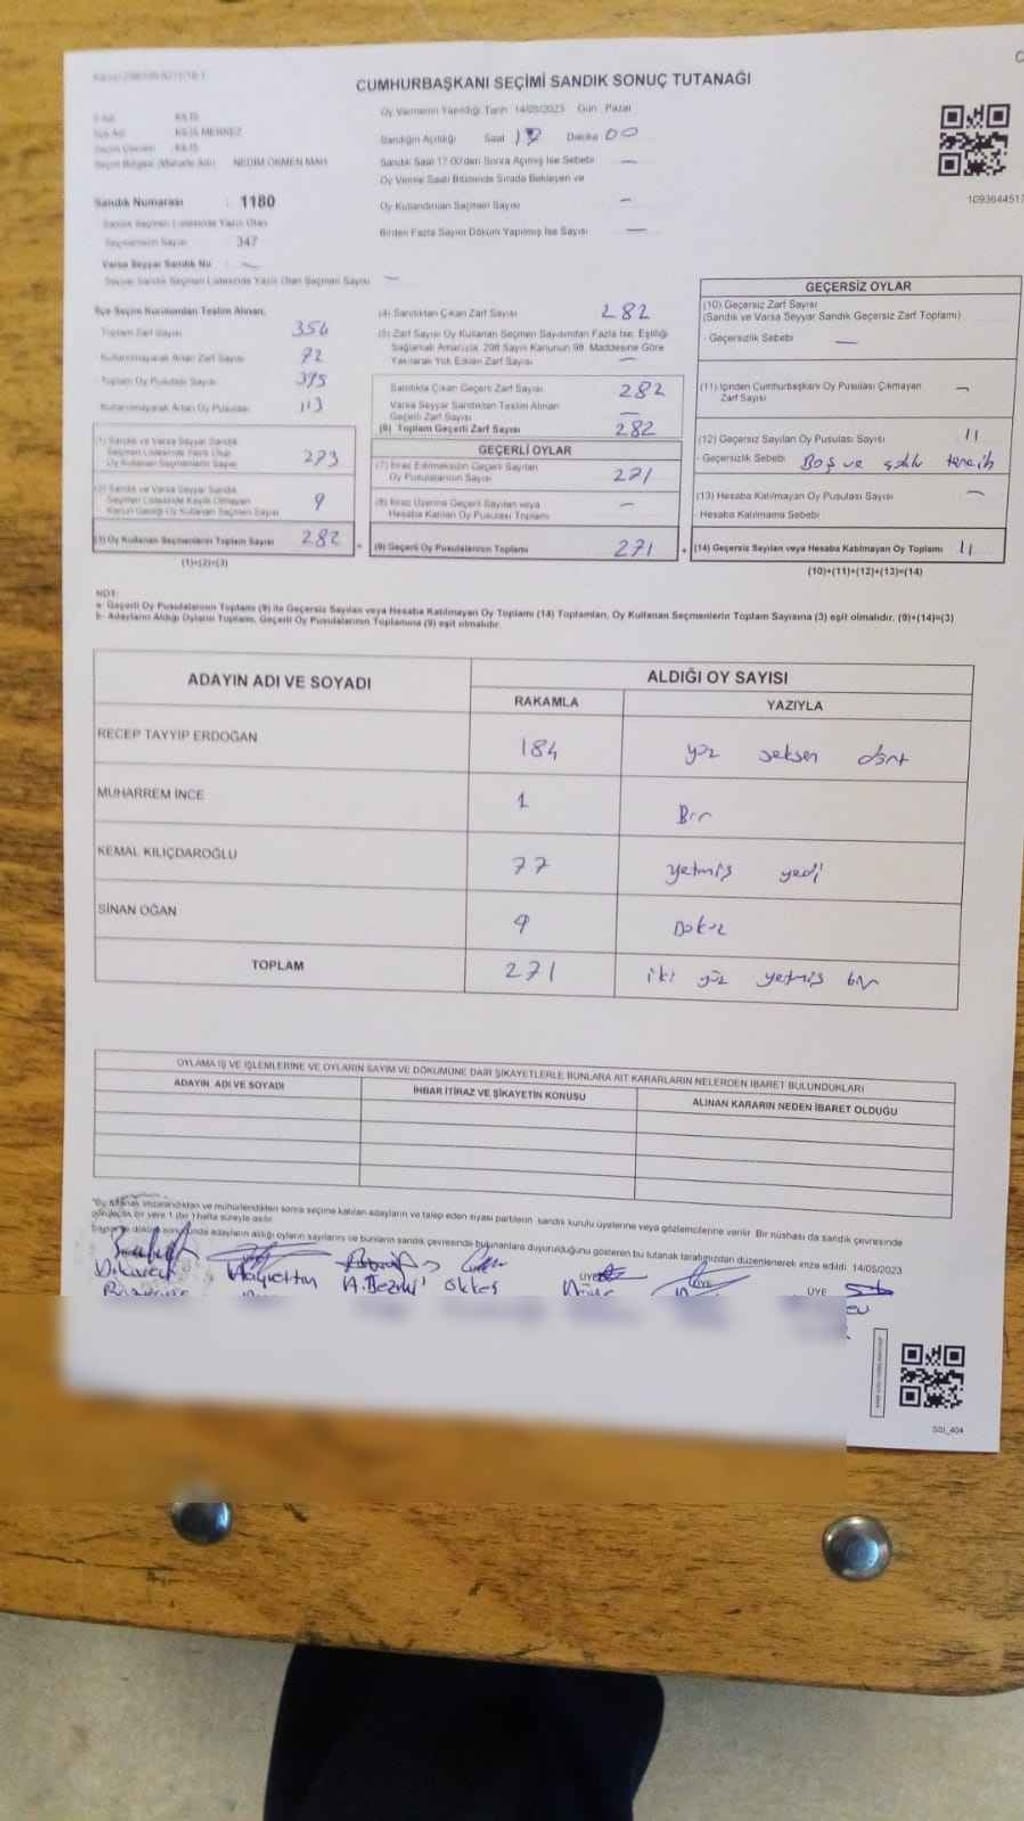 CUMHURBAŞKANI SEÇİMİ SANDIK SONUÇ TUTANAĞI
Oy Vermenin Yapıldığı Tarih 14/05/2023 Gün : Pazar
İli Adı KİLİS
İlçe Adı KİLİS MERKEZ
Seçim Çevresi KİLİS
NEDİM ÖKMEN MAH.
Sandığın Açıldığı Saat Dakika 00
Sandık Saat 17.00'den Sonra Açılmış İse Sebebi —
Oy Verme Saati Bitiminde Sırada Bekleyen ve
Oy Kullandırılan Seçmen Sayısı —
Birden Fazla Sayım Döküm Yapılmış İse Sayısı —
1093644517
Sandık Numarası : 1180
Sandık Seçmen Listesinde Yazılı Olan
Seçmenlerin Sayısı 347
Varsa Seyyar Sandık No : —
Seyyar Sandık Seçmen Listesinde Yazılı Olan Seçmen Sayısı —
İlçe Seçim Kurulundan Teslim Alınan;
Toplam Zarf Sayısı 354
Kullanılmayarak Artan Zarf Sayısı 72
Toplam Oy Pusulası Sayısı 395
Kullanılmayarak Artan Oy Pusulası 113
(1) Sandık ve Varsa Seyyar Sandık
Seçmen Listesinde Yazılı Olup
Oy Kullanan Seçmenlerin Sayısı 273
(2) Sandık ve Varsa Seyyar Sandık
Seçmen Listesinde Kayıtlı Olmayan
Kanun Gereği Oy Kullanan Seçmen Sayısı 9
(3) Oy Kullanan Seçmenlerin Toplam Sayısı 282
(1)+(2)=(3)
(4) Sandıktan Çıkan Zarf Sayısı 282
(5) Zarf Sayısı Oy Kullanan Seçmen Sayısından Fazla İse, Eşitliği
Sağlamak Amacıyla, 298 Sayılı Kanunun 98. Maddesine Göre
Yakılarak Yok Edilen Zarf Sayısı —
Sandıkta Çıkan Geçerli Zarf Sayısı 282
Varsa Seyyar Sandıktan Teslim Alınan
Geçerli Zarf Sayısı —
(6) Toplam Geçerli Zarf Sayısı 282
GEÇERLİ OYLAR
(7) İtiraz Edilmeksizin Geçerli Sayılan
Oy Pusulalarının Sayısı 271
(8) İtiraz Üzerine Geçerli Sayılan veya
Hesaba Katılan Oy Pusulası Toplamı —
(9) Geçerli Oy Pusulalarının Toplamı 271
GEÇERSİZ OYLAR
(10) Geçersiz Zarf Sayısı
(Sandık ve Varsa Seyyar Sandık Geçersiz Zarf Toplamı)
- Geçersizlik Sebebi —
(11) İçinden Cumhurbaşkanı Oy Pusulası Çıkmayan
Zarf Sayısı —
(12) Geçersiz Sayılan Oy Pusulası Sayısı 11
- Geçersizlik Sebebi Boş ve tercih
(13) Hesaba Katılmayan Oy Pusulası Sayısı —
Hesaba Katılmama Sebebi
+ (14) Geçersiz Sayılan veya Hesaba Katılmayan Oy Toplamı 11
(10)+(11)+(12)+(13)=(14)
NOT:
a- Geçerli Oy Pusulalarının Toplamı (9) ile Geçersiz Sayılan veya Hesaba Katılmayan Oy Toplamı (14) Toplamları, Oy Kullanan Seçmenlerin Toplam Sayısına (3) eşit olmalıdır. (9)+(14)=(3)
b- Adayların Aldığı Oyların Toplamı, Geçerli Oy Pusulalarının Toplamına (9) eşit olmalıdır.
ADAYIN ADI VE SOYADI ALDIĞI OY SAYISI
RAKAMLA YAZIYLA
RECEP TAYYİP ERDOĞAN 184 yüz seksen dört
MUHARREM İNCE 1 Bir
KEMAL KILIÇDAROĞLU 77 yetmiş yedi
SİNAN OĞAN 9 Dokuz
TOPLAM 271 iki yüz yetmiş bir
OYLAMA İŞ VE İŞLEMLERİNE VE OYLARIN SAYIM VE DÖKÜMÜNE DAİR ŞİKAYETLERLE BUNLARA AİT KARARLARIN NELERDEN İBARET BULUNDUKLARI
ADAYIN ADI VE SOYADI İHBAR İTİRAZ VE ŞİKAYETİN KONUSU ALINAN KARARIN NEDEN İBARET OLDUĞU
*Bu tutanak imzalandıktan ve mühürlendikten sonra seçime katılan adayların ve talep eden siyasi partilerin sandık kurulu üyelerine veya gözlemcilerine verilir. Bir nüshası da sandık çevresinde
görülecek bir yere 1 (bir) hafta süreyle asılır.
adayların aldığı oyların sayılarını ve bunların sandık çevresinde bulunanlara duyurulduğunu gösteren bu tutanak tarafımızdan düzenlenerek imza edildi. 14/05/2023
Hayrettin ökkeş
ÜYE ÜYE ÜYE
SSI_404